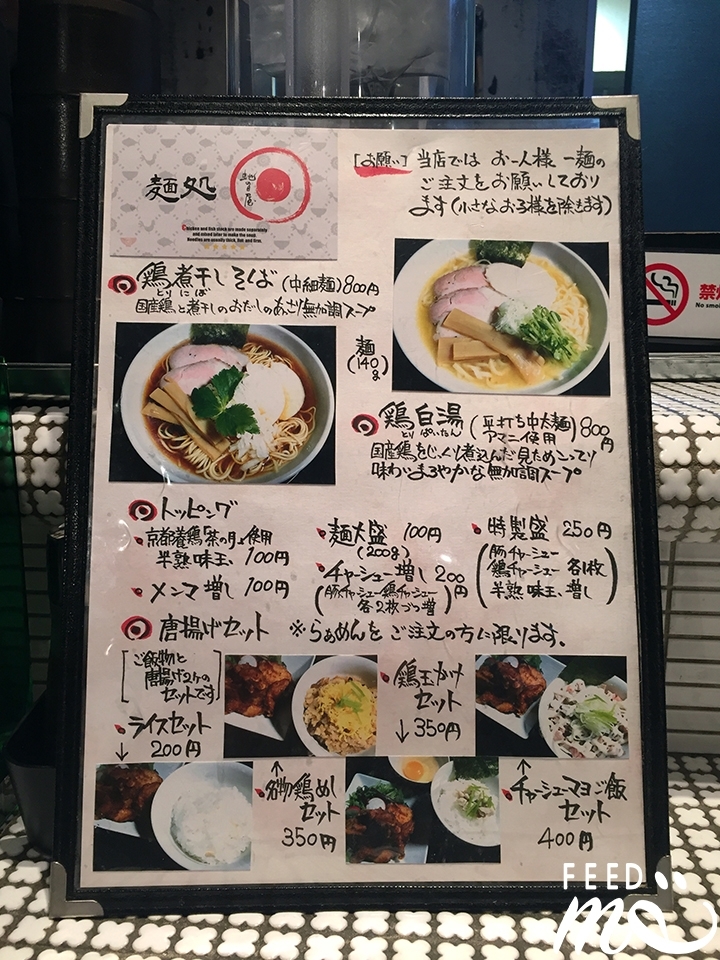 麺処
Chicken and fish stock are made separately
and mixed later to make the soup.
Noodles are usually thick, flat and firm.
[お願い] 当店では お一人様 一麺の
ご注文をお願いしており
ます(小さなお子様を除きます)
鶏煮干しそば(中細麺)800円
とりにぼ
国産鶏と煮干しのおだしのあごり無加調スープ
麺
(140g)
鶏白湯(平打ち中太麺)800円
とりぱいたん
アマニ使用
国産鶏をじっくり煮込んだ見ためこってり
味わいまろやかな無加調スープ
トッピング
京都養鶏「茶の月」使用
半熟味玉 100円
メンマ増し 100円
麺大盛 100円
(200g)
チャーシュー増し 200円
(豚チャーシュー鶏チャーシュー
各2枚づつ増)
特製盛 250円
(豚チャーシュー
鶏チャーシュー 各1枚
半熟味玉、増し)
唐揚げセット ※らぁめんをご注文の方に限ります。
[ご飯物と
唐揚げ2ヶの
セットです]
ライスセット
↓ 200円
鶏玉かけ
セット
↓ 350円
↑
名物鶏めし
セット
350円
↑
チャーシューマヨご飯
セット
400円
禁煙
No smoking
FEED
me